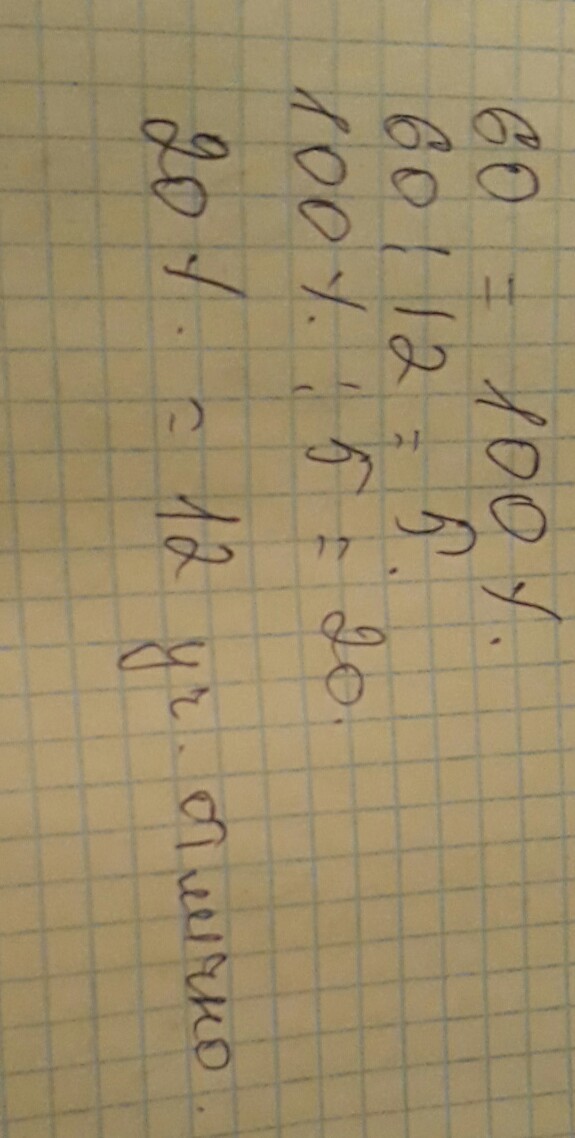 60 = 100 %.
60 : 12 = 5.
100 % : 5 = 20.
20 %. = 12 уч. отлично.